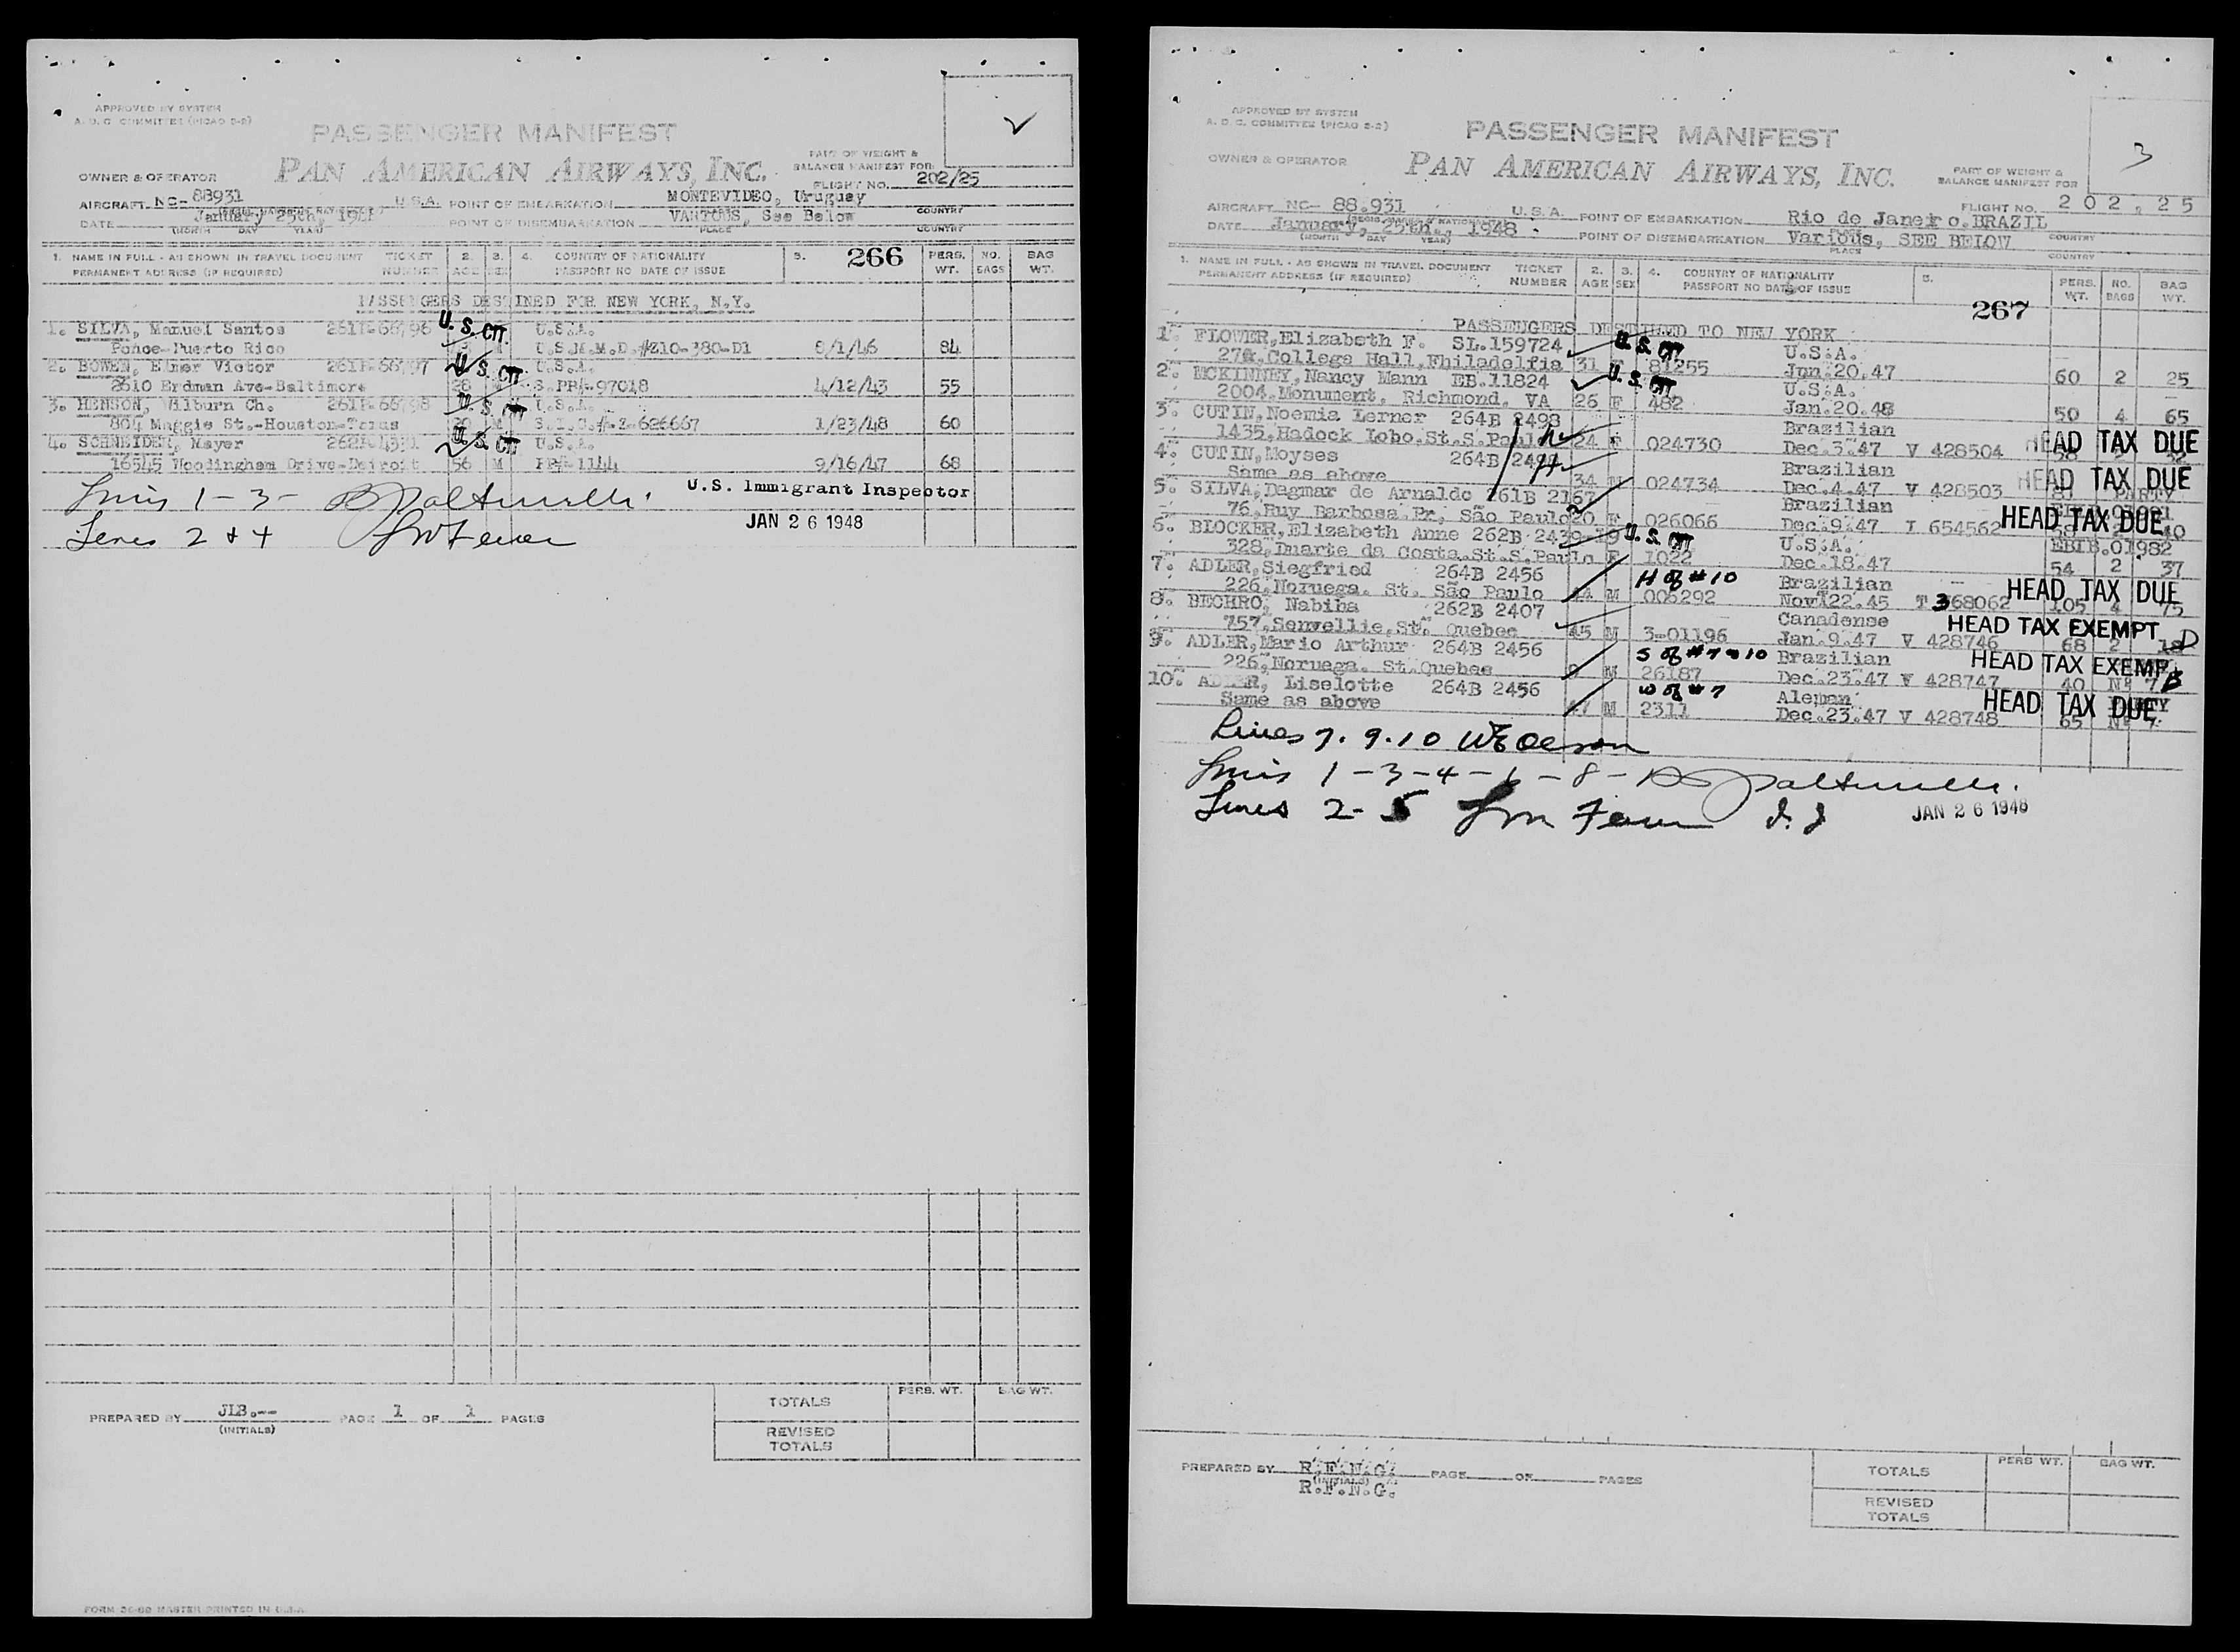 APPROVED BY SYSTEM
A. O. C. COMMITTEE (PICAO 2-2)
PASSENGER MANIFEST
PAN AMERICAN AIRWAYS, INC.
PART OF WEIGHT &
BALANCE MANIFEST FOR
OWNER & OPERATOR
FLIGHT NO. 202/25
AIRCRAFT NC- 88931 U.S.A. POINT OF EMBARKATION MONTEVIDEO, Uruguay COUNTRY
DATE January 25th, POINT OF DISEMBARKATION VARIOUS, See Below
(MONTH DAY YEAR) PLACE COUNTRY
1. NAME IN FULL - AS SHOWN IN TRAVEL DOCUMENT TICKET 2. 3. 4. COUNTRY OF NATIONALITY 5. 266 PERS. NO. BAG
PERMANENT ADDRESS (IF REQUIRED) NUMBER AGE SEX PASSPORT NO DATE OF ISSUE WT. BAGS WT.
PASSENGERS DESTINED FOR NEW YORK, N.Y.
1. SILVA, Manuel Santos U.S. CIT. U.S.A.
Ponce-Puerto Rico U.S.M.M.D. #Z10-380-D1 8/1/46 84
2. BOWEN, Elmer Victor U.S. CIT U.S.A.
2610 Erdman Ave-Baltimore 28 97018 4/12/43 55
3. HENSON, Wilburn Ch. U.S. CIT U.S.A.
804 Maggie St.-Houston-Texas Z-626667 1/23/48 60
4. SCHNEIDER, Mayer U.S. CIT U.S.A.
16545 Woodingham Drive-Detroit 56 M PP#-1144 9/16/47 68
Lines 1-3-
U.S. Immigrant Inspector
Lines 2 & 4
JAN 26 1948
PREPARED BY JLB.-- PAGE 1 OF 1 PAGES
(INITIALS)
PERS. WT. BAG WT.
TOTALS
REVISED
TOTALS
FORM MASTER PRINTED IN U.S.A.
APPROVED BY SYSTEM
A. O. C. COMMITTEE (PICAO 2-2)
PASSENGER MANIFEST
3
OWNER & OPERATOR
PAN AMERICAN AIRWAYS, INC.
PART OF WEIGHT &
BALANCE MANIFEST FOR
FLIGHT NO. 202,25
AIRCRAFT NC- 88.931 U.S.A. POINT OF EMBARKATION Rio de Janeiro.BRAZIL
DATE January, 25th., 1948 POINT OF DISEMBARKATION Various, SEE BELOW COUNTRY
(MONTH DAY YEAR) PLACE COUNTRY
1. NAME IN FULL - AS SHOWN IN TRAVEL DOCUMENT TICKET 2. 3. 4. COUNTRY OF NATIONALITY 5. PERS. NO. BAG
PERMANENT ADDRESS (IF REQUIRED) NUMBER AGE SEX PASSPORT NO DATE OF ISSUE WT. BAGS WT.
267
PASSENGERS DESTINED TO NEW YORK
1. FLOWER,Elizabeth F. SL.159724 U.S. CIT U.S.A.
College Hall,Philadelfia 31 F 81255 Jun.20.47 60 2 25
2. MCKINNEY,Nancy Mann EB.11824 U.S. CIT U.S.A.
2004.Monument, Richmond, VA 26 F 482 Jan.20.48 50 4 65
3. CUTIN,Noemia Lerner 264B 2498 Brazilian
1435.Hadock Lobo.St.S.Paulo 24 F 024730 Dec.3.47 V 428504 HEAD TAX DUE
4. CUTIN,Moyses 264B Brazilian
Same as above 34 M 024734 Dec.4.47 V 428503 HEAD TAX DUE
5. SILVA,Dagmar de Arnaldo 261B 2167 Brazilian
76.Ruy Barbosa.Pr, São Paulo 20 F 026066 Dec.9.47 I 654562 HEAD TAX DUE
6. BLOCKER,Elizabeth Anne 262B 2439-19 U.S. CIT U.S.A. EBIB.01982
328.Duarte da Costa.St.S.Paulo F 1022 Dec.18.47 54 2 37
7. ADLER,Siegfried 264B 2456 H of #10 Brazilian
226.Noruega. St. São Paulo 44 M 006292 Nov.22.45 T 368062 HEAD TAX DUE 105 4 75
8. BECHRO, Nabiha 262B 2407 Canadense
757.Senvellie.St. Quebec 45 M 3-01196 Jan.9.47 V 428746 HEAD TAX EXEMPT D 68 2
9. ADLER,Mario Arthur 264B 2456 S of #7 & 10 Brazilian
226,Noruega. St.Quebec M 26187 Dec.23.47 V 428747 HEAD TAX EXEMPT B 40 Nº 7
10. ADLER, Liselotte 264B 2456 W of #7 Aleman
Same as above 47 M 2311 Dec.23.47 V 428748 HEAD TAX DUE 65 Nº 7
Lines 7. 9. 10
Lines 1-3-4-6-8-
Lines 2-5
JAN 26 1948
PREPARED BY R.F.N.G. PAGE OF PAGES
(INITIALS)
R.F.N.G.
PERS WT. BAG WT.
TOTALS
REVISED
TOTALS